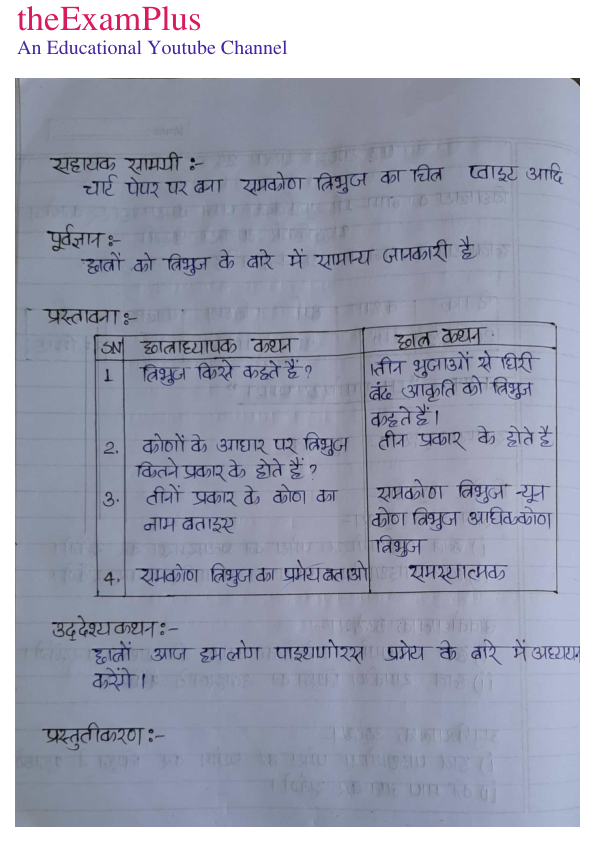 theExamPlus
An Educational Youtube Channel
सहायक सामग्री :-
चार्ट पेपर पर बना समकोण त्रिभुज का चित्र प्वाइंट आदि
पूर्वज्ञान :-
छात्रों को त्रिभुज के बारे में सामान्य जानकारी है
प्रस्तावना :-
SN छात्राध्यापक कथन छात्र कथन
1 त्रिभुज किसे कहते हैं ? तीन भुजाओं से घिरी
बंद आकृति को त्रिभुज
कहते हैं।
2. कोणों के आधार पर त्रिभुज तीन प्रकार के होते है
कितने प्रकार के होते हैं ?
3. तीनों प्रकार के कोण का समकोण त्रिभुज न्यून
नाम बताइए कोण त्रिभुज अधिककोण
त्रिभुज
4. समकोण त्रिभुज का प्रमेय बताओ समस्यात्मक
उद्देश्य कथन :-
छात्रों आज हम लोग पाइथागोरस प्रमेय के बारे में अध्ययन
करेंगे।
प्रस्तुतीकरण :-